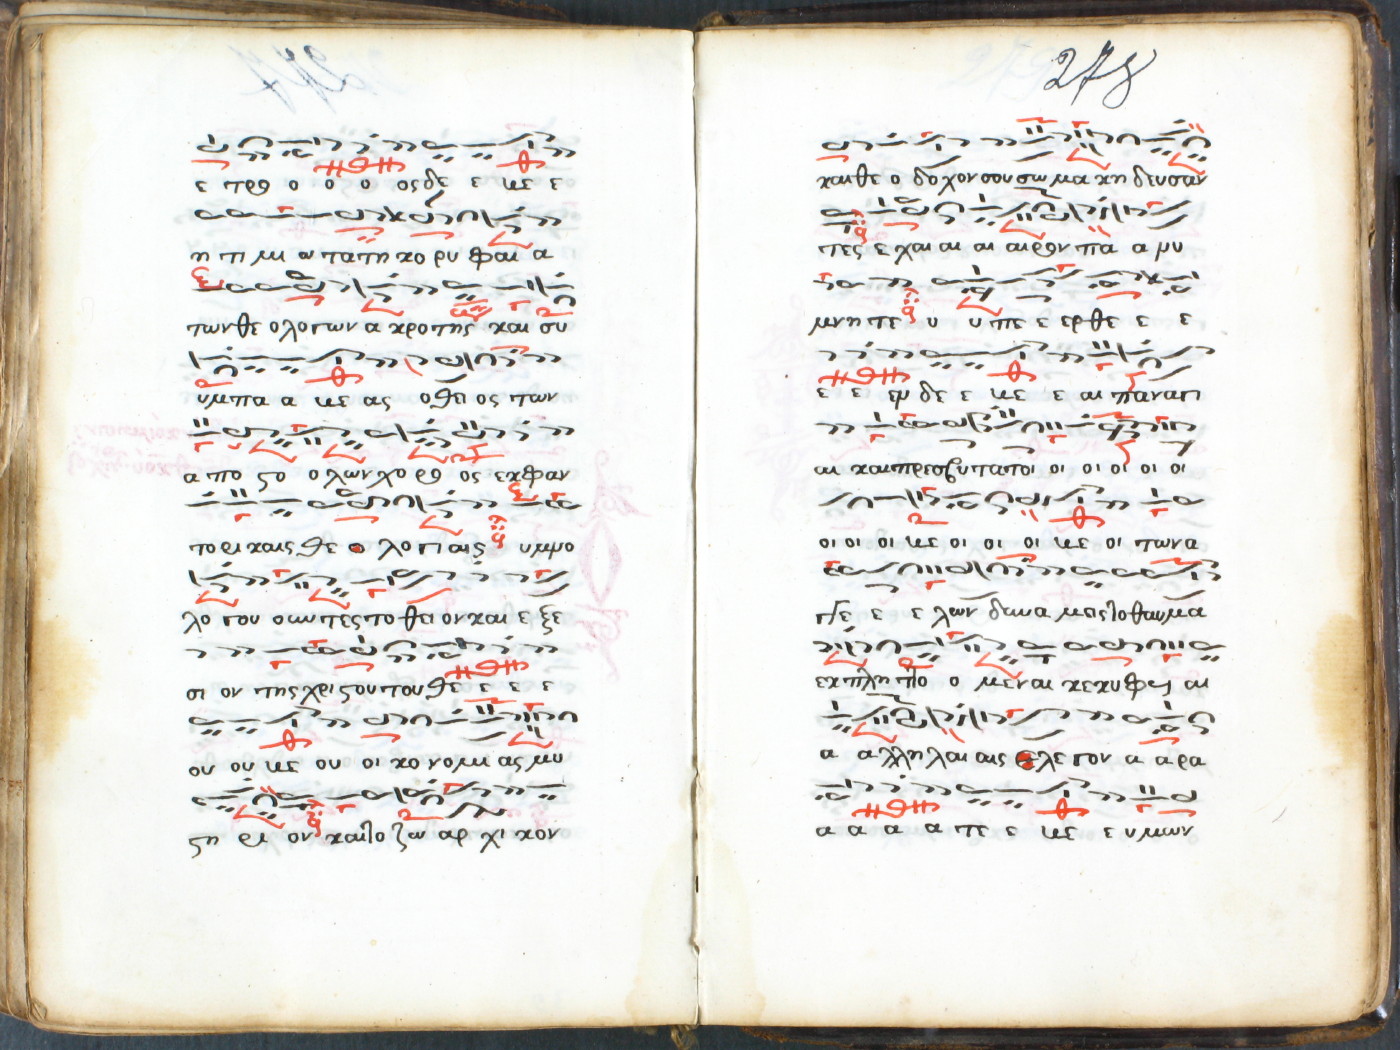 277
ε τρο ο ο ο ος δε ε με ε
η τι μι ω τα τη κο ρυ φαι α
των θε ο λο γων α κρο της και συ
υμ πα α με ας ο θει ος των
α πο ςο ο λων χο ρο ος εκ φαν
το ρι καις θε ο λο γι αις υμ νο
λο γου σων τες το θει ον και ε ξε
σι ον της χρι ςου του θε ε ε ε
ου ου με ου οι κο νο μι ας μυ
ςη ρι ον και το ζω αρ χι κον
278
και θε ο δο χον σου σω μα κη δευ σαν
τες ε χαι αι αι αι ρον πα α μυ
μνη τε υ υ πε ε ερ θε ε ε
ε ε εν δε ε με ε αι πανα γι
αι και πρεσβυ ταται οι οι οι οι οι
οι οι οι με οι οι οι με οι των α
γγε ε ε λων δυνα μεις το θαυμα
εκ πλη τιο ο με ναι κε κυ φυι αι
α α λλη λαι αις ε λε γον α α ρα
α α α α τε ε με ε υ μων